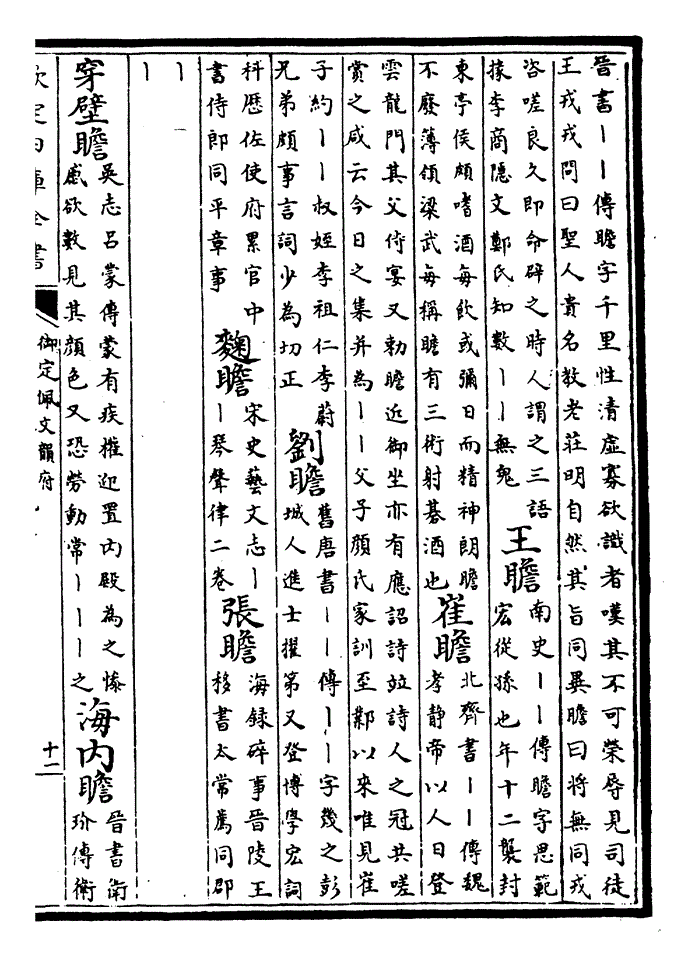 晉書丨丨傳瞻字千里性清虛寡欲識者嘆其不可榮辱見司徒
王戎戎問曰聖人貴名教老莊明自然其旨同異瞻曰將無同戎
咨嗟良久即命辟之時人謂之三語
掾李商隠文鄭氏知數丨丨無鬼
王瞻
南史丨丨傳瞻字思範
宏從孫也年十二襲封
東亭侯頗嗜酒每飲或彌日而精神朗瞻
不廢簿領梁武每稱瞻有三術射碁酒也
崔瞻
北齊書丨丨傳魏
孝静帝以人日登
雲龍門其父侍宴又勅瞻近御坐亦有應詔詩竝詩人之冠共嗟
賞之咸云今日之集并為丨丨父子顔氏家訓至鄴以來唯見崔
子約丨丨叔姪李祖仁李蔚
兄弟頗事言詞少為切正
劉瞻
舊唐書丨丨傳丨丨字幾之彭
城人進士擢第又登博學宏詞
科歴佐使府累官中
書侍郎同平章事
麴瞻
宋史藝文志丨
丨琴聲律二卷
張瞻
海録碎事晉陵王
移書太常薦同郡
丨
丨
穿壁瞻
吳志吕蒙傳蒙有疾權迎置内殿為之慘
慼欲數見其顔色又恐勞動常丨丨丨之
海内瞻
晉書衛
玠傳衛
欽定四庫全書
御定佩文韻府
十二